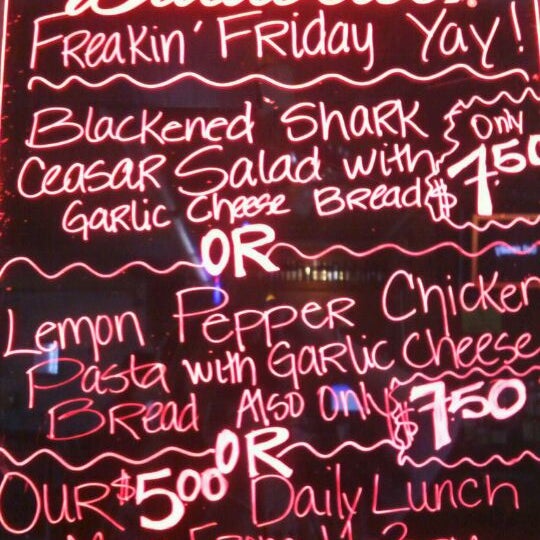 Freakin' Friday Yay!
Blackened Shark
Ceasar Salad with
Garlic Cheese Bread
Only
$7.50
OR
Lemon Pepper Chicken
Pasta with Garlic Cheese
Bread Also Only
$7.50
OR
Our $5.00 Daily Lunch
From 11